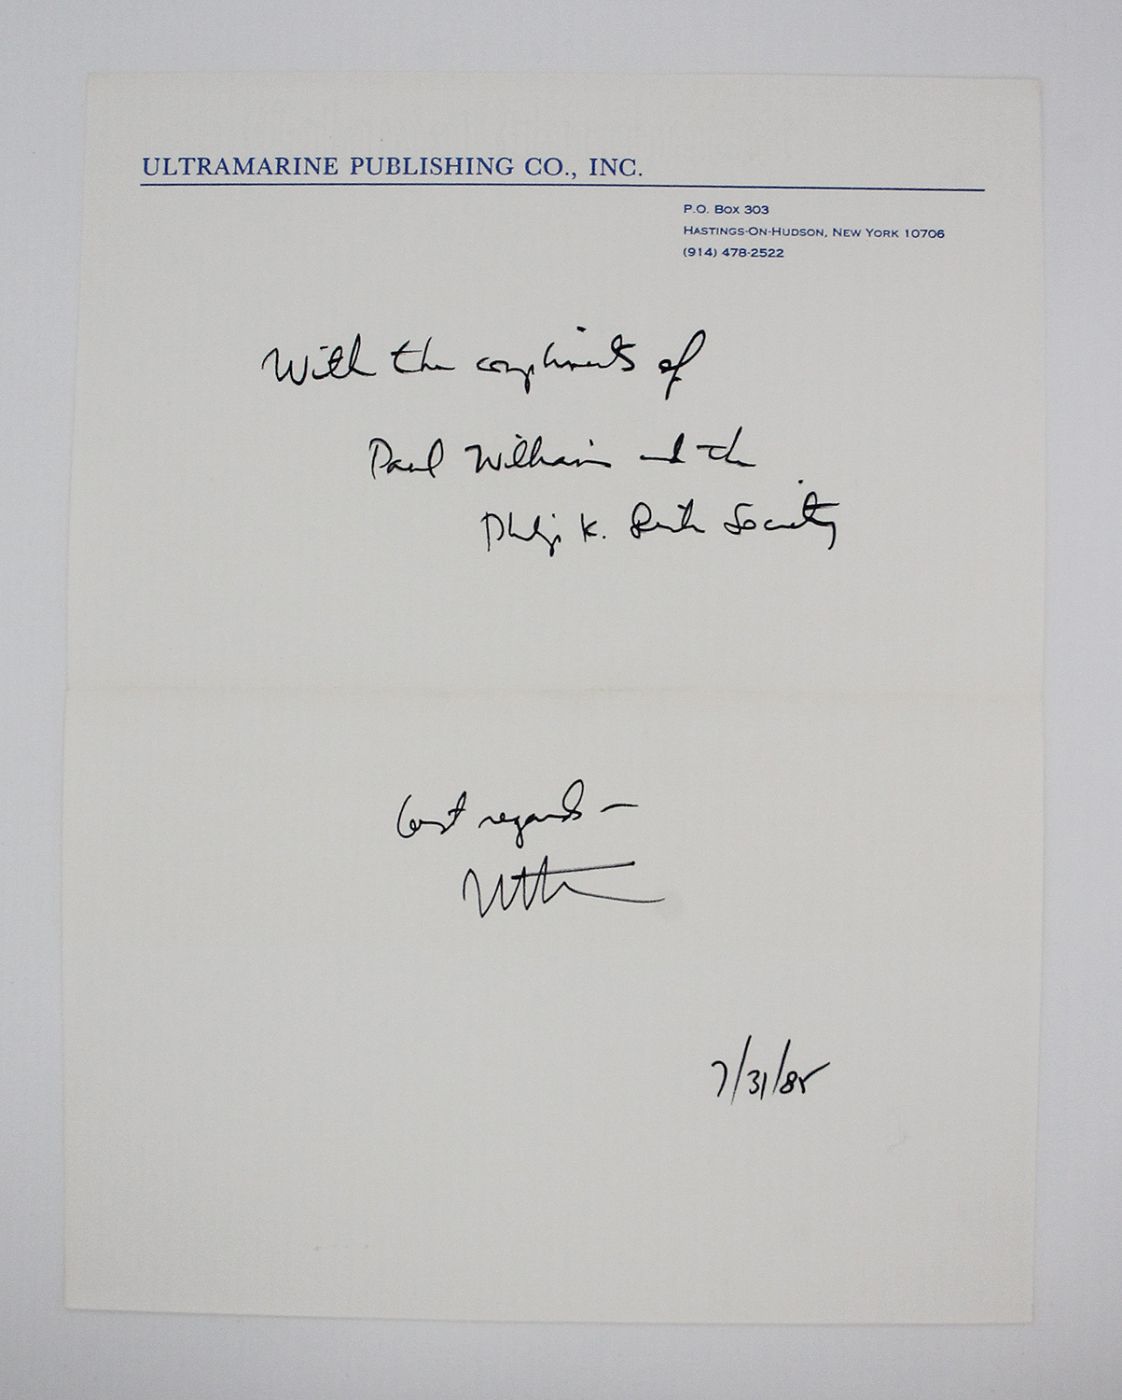 ULTRAMARINE PUBLISHING CO., INC.
P.O. BOX 303
HASTINGS-ON-HUDSON, NEW YORK 10706
(914) 478-2522
With the compliments of
Paul Williams and the
Philip K. Dick Society
best regards —
7/31/85